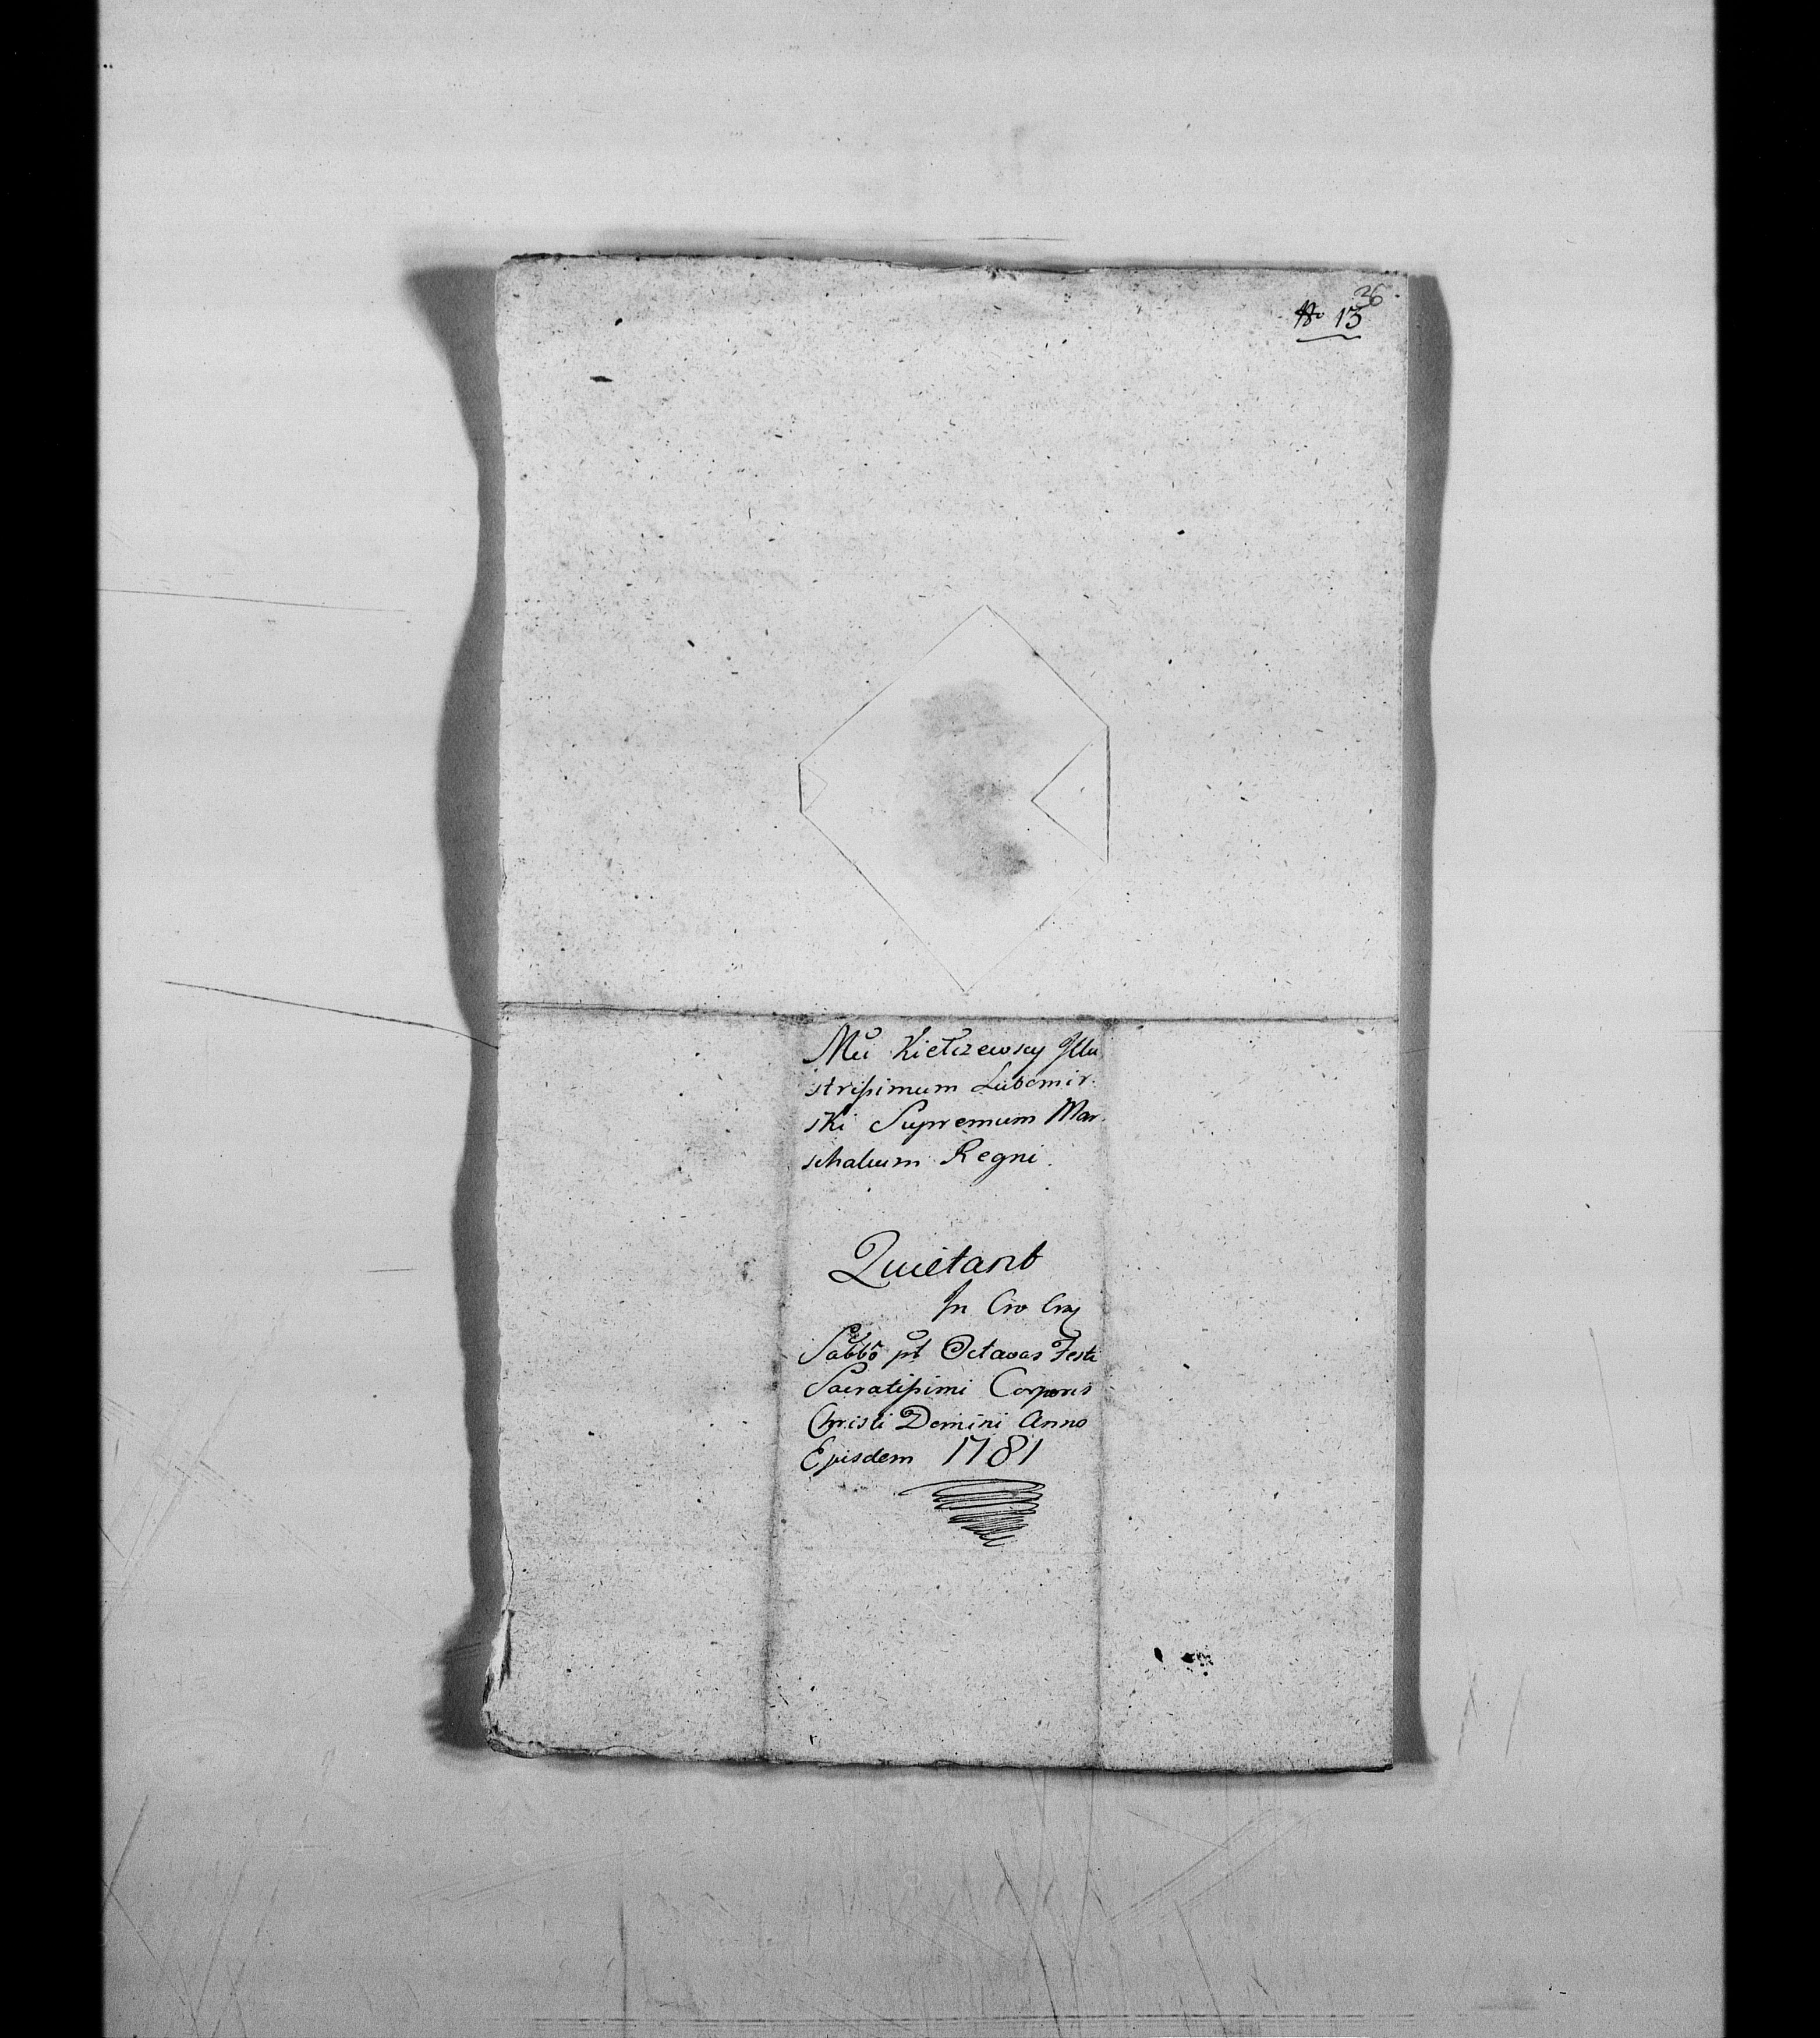 26
No 13
Mci Kiełczewscy Illu
strissimum Lubomir.
ski Supremum Mar.
schalcum Regni.
Quietant
In Cro
Sabbo pt Octavas Festi
Sacratissimi Corporis
Christi Domini Anno
Ejusdem 1781